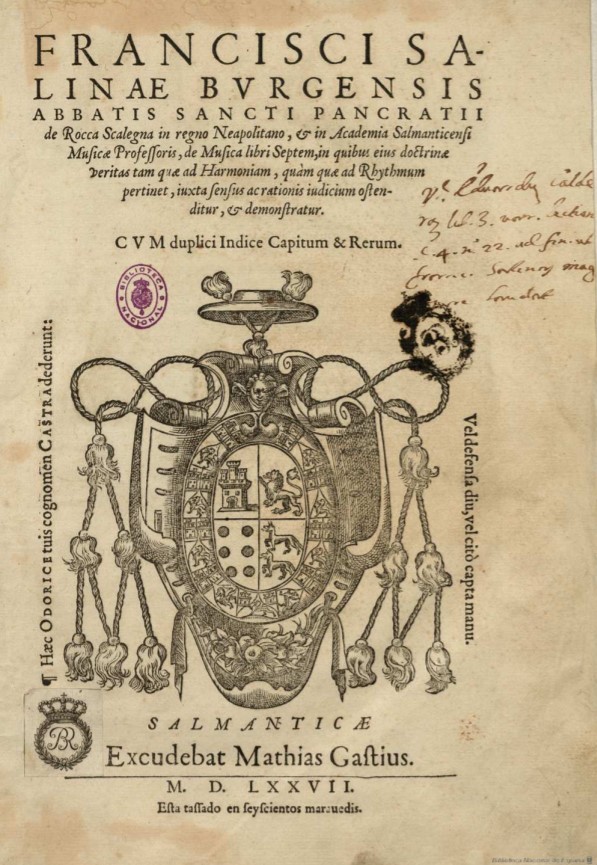 FRANCISCI SA-
LINAE BVRGENSIS
ABBATIS SANCTI PANCRATII
de Rocca Scalegna in regno Neapolitano, & in Academia Salmanticensi
Musicæ Professoris, de Musica libri Septem, in quibus eius doctrinæ
veritas tam quæ ad Harmoniam, quàm quæ ad Rhythmum
pertinet, iuxta sensus ac rationis iudicium osten-
ditur, & demonstratur.
CVM duplici Indice Capitum & Rerum.
BIBLIOTECA NACIONAL
¶ Hæc ODORICE tuis cognomen CASTRA dederunt:
Vel defensa diu, vel citò capta manu.
SALMANTICÆ
Excudebat Mathias Gastius.
M. D. LXXVII.
Esta tassado en seyscientos marauedis.
BR